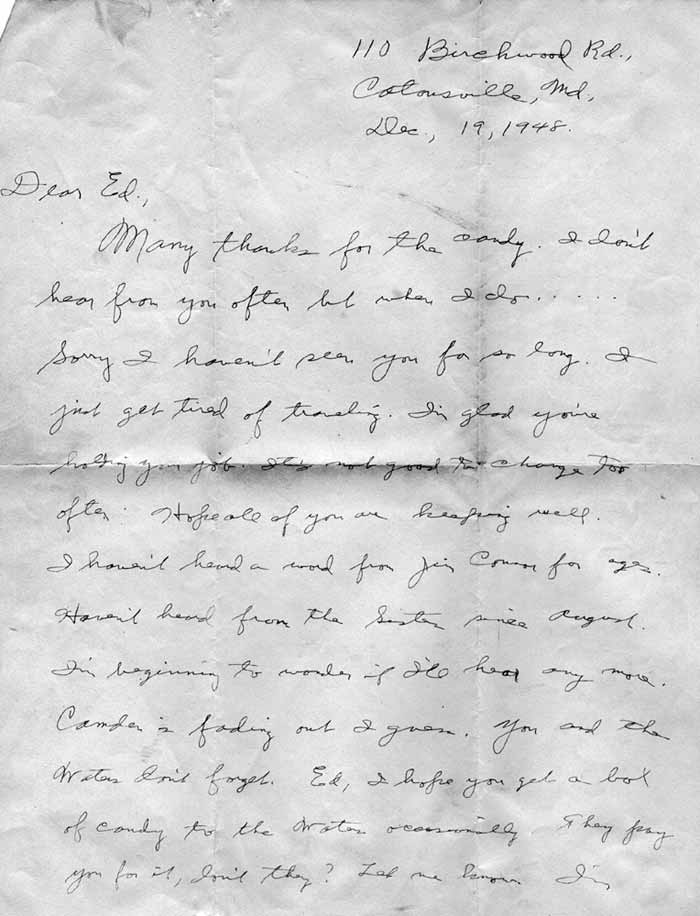 110 Birchwood Rd.,
Catonsville, Md.,
Dec., 19, 1948.
Dear Ed.,
Many thanks for the candy. I don't
hear from you often but when I do.....
Sorry I haven't seen you for so long. I
just get tired of traveling. I'm glad you're
holding your job. It's not good to change too
often. Hope all of you are keeping well.
I haven't heard a word from Jim for ages.
Haven't heard from the Sister since August.
I'm beginning to wonder if I'll hear any more.
Camden is fading out I guess. You and the
Waters don't forget. Ed, I hope you get a box
of candy to the Waters occasionally They pay
you for it, don't they? Let me know I'm